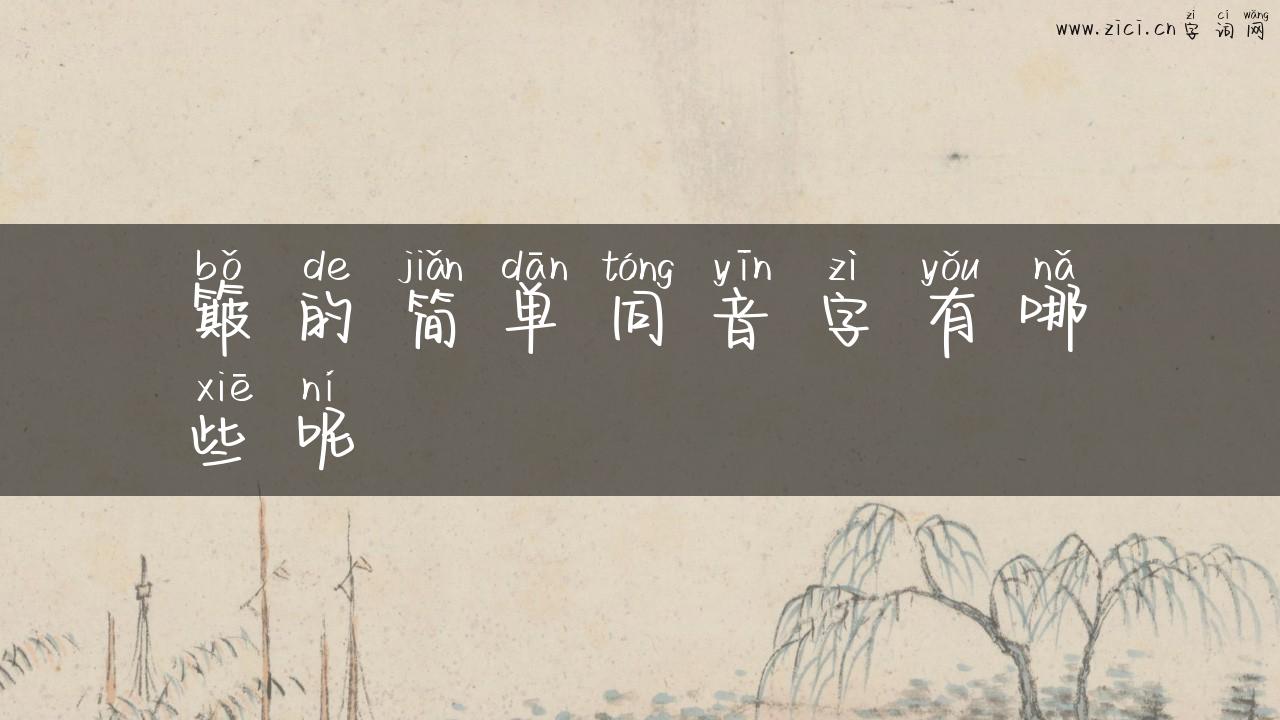 zì cí wǎng
www.zici.cn 字词网
bǒ de jiǎn dān tóng yīn zì yǒu nǎ
簸的简单同音字有哪
xiē ní
些呢